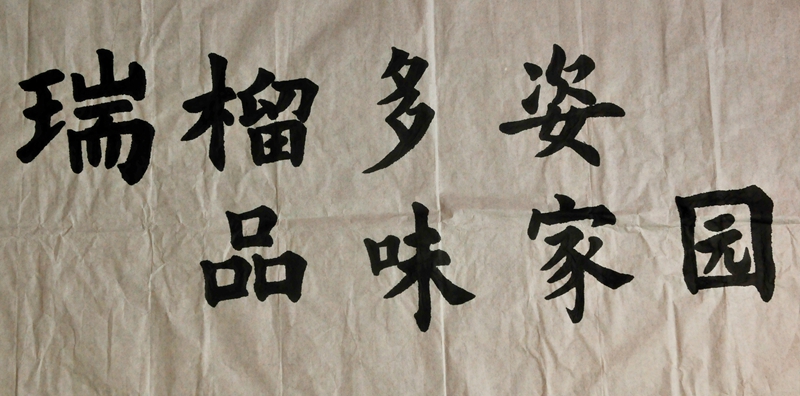 瑞榴多姿
品味家园